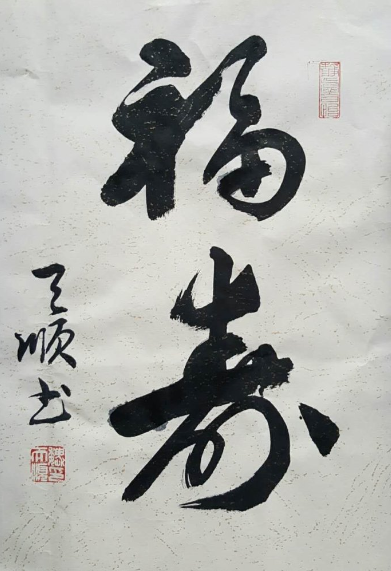 福寿
天顺书